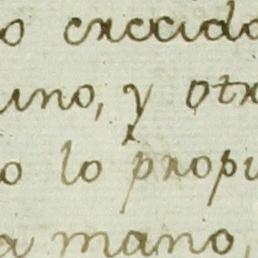 o crecido
uno, y otr
o lo propi
a mano,